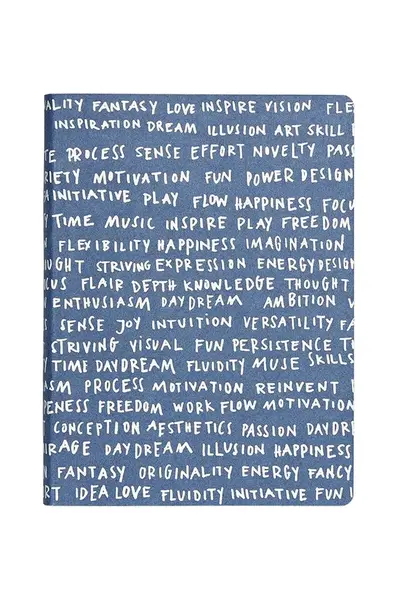 ALITY FANTASY LOVE INSPIRE VISION FLE
INSPIRATION DREAM ILLUSION ART SKILL
TE PROCESS SENSE EFFORT NOVELTY PASS
RIETY MOTIVATION FUN POWER DESIGN
A INITIATIVE PLAY FLOW HAPPINESS FOCU
Y TIME MUSIC INSPIRE PLAY FREEDOM
N FLEXIBILITY HAPPINESS IMAGINATION
UGHT STRIVING EXPRESSION ENERGY DESIGN
CUS FLAIR DEPTH KNOWLEDGE THOUGHT
ENTHUSIASM DAYDREAM AMBITION V
S SENSE JOY INTUITION VERSATILITY FA
STRIVING VISUAL FUN PERSISTENCE T
Y TIME DAYDREAM FLUIDITY MUSE SKILLS
ASM PROCESS MOTIVATION REINVENT
PENESS FREEDOM WORK FLOW MOTIVATION
T CONCEPTION AESTHETICS PASSION DAYDR
RAGE DAYDREAM ILLUSION HAPPINESS
N FANTASY ORIGINALITY ENERGY FANCY
RT IDEA LOVE FLUIDITY INITIATIVE FUN I